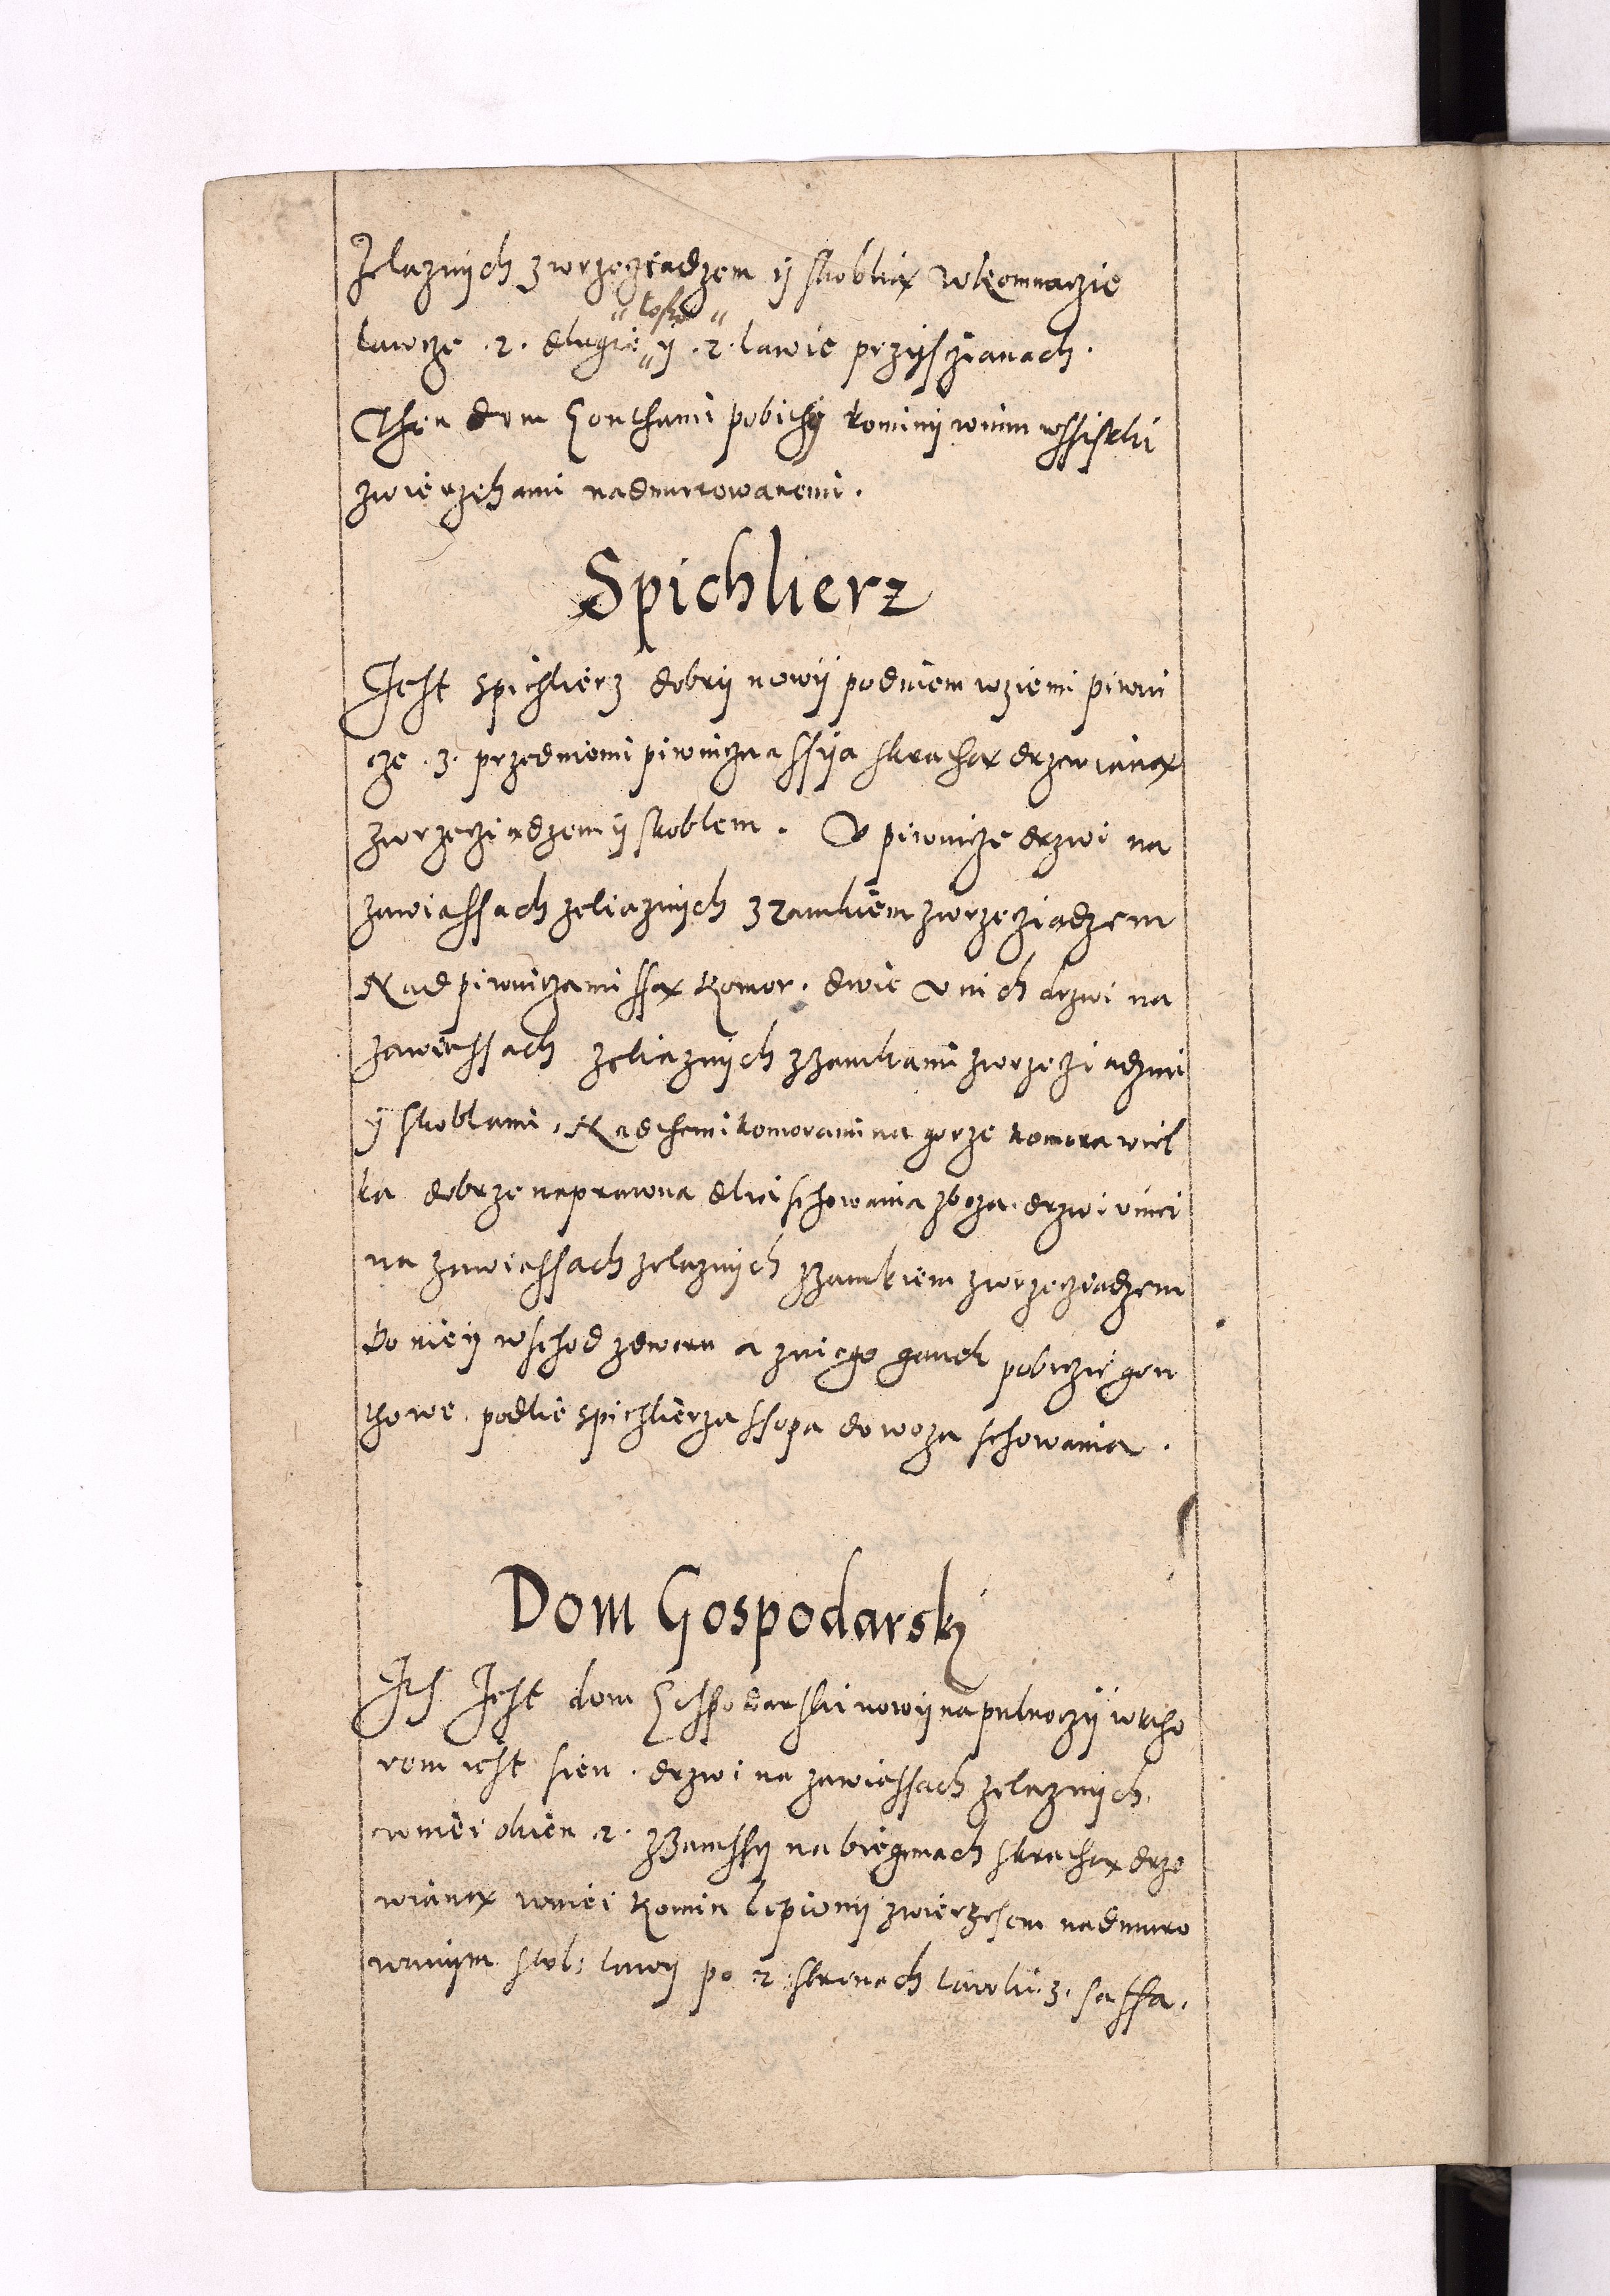 Zelaznych z wrzecziadzem y skoblią w komnaczie
lawcze .2. dlugie „ y .2. lawie przysczianach.
„ łoże „
Then dom Gonthami pobithy kominy wnim wssistki
zwierzchami nadmurowanemi.
Spichlierz
Jest spichlierz dobry nowy podniem wziemi piwni
cze .3. przedniemi piwniczna ssyia skrathą drzewianą
zwrzecziadzem y skoblem. U piwnicze drzwi na
zawiassach zeliaznych z zamkiem zwrzecziadzem
Nad piwniczami ssą komor. dwie u nich drzwi na
zawiassach zeliaznych zzamkami zwrzecziadzmi
y skoblami. Nad themi komorami na gorze komora wiel
ka dobrze naprawna dlia schowania zboza. drzwi u niei
na zawiassach zelaznych zzamkiem zwrzecziadzem
do niey wschod zdworu a zniego ganek pobiczie gon
thowe. podlie spichlierza ssopa dowoza schowania.
Dom Gospodarski
Jest dom Gosspodarski nowy na pulnoczy w ktho
rom iest sien. drzwi na zawiassach zelaznych.
wniei okien 2. zBamssy na biegunach skrathą drze
wianą wniei komin lepiony zwierzchem nadmuro
wanym stol: lawy po 2 stronach lawki .3. saffa.